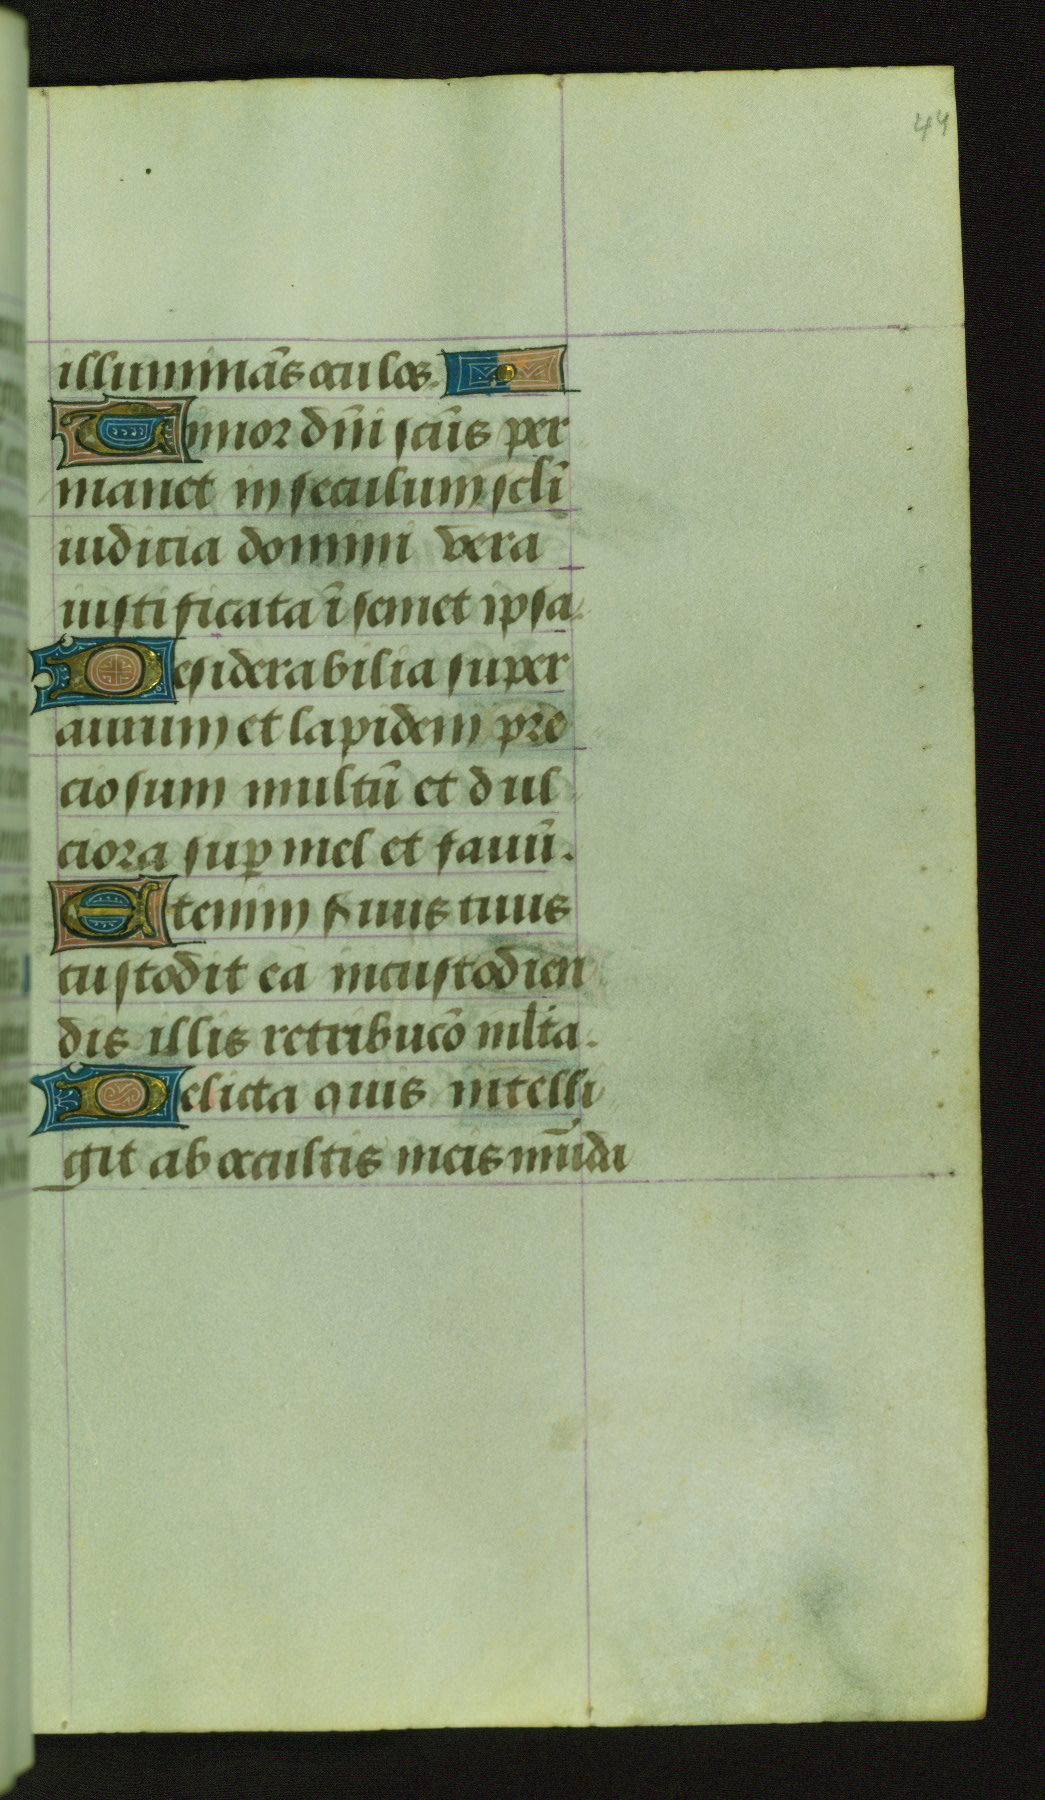 44
illuminãs oculos.
Timor dñi scũs per
manet in seculum scli
iudicia domini vera
iustificata ĩ semet ipsa.
Desiderabilia super
aurum et lapidem pre
ciosum multũ et dul
ciora sup mel et fauũ.
Etenim suus tuus
custodit ea in custodien
dis illis retribucõ mlta.
Delicta quis intelli
git ab occultis meis mũda